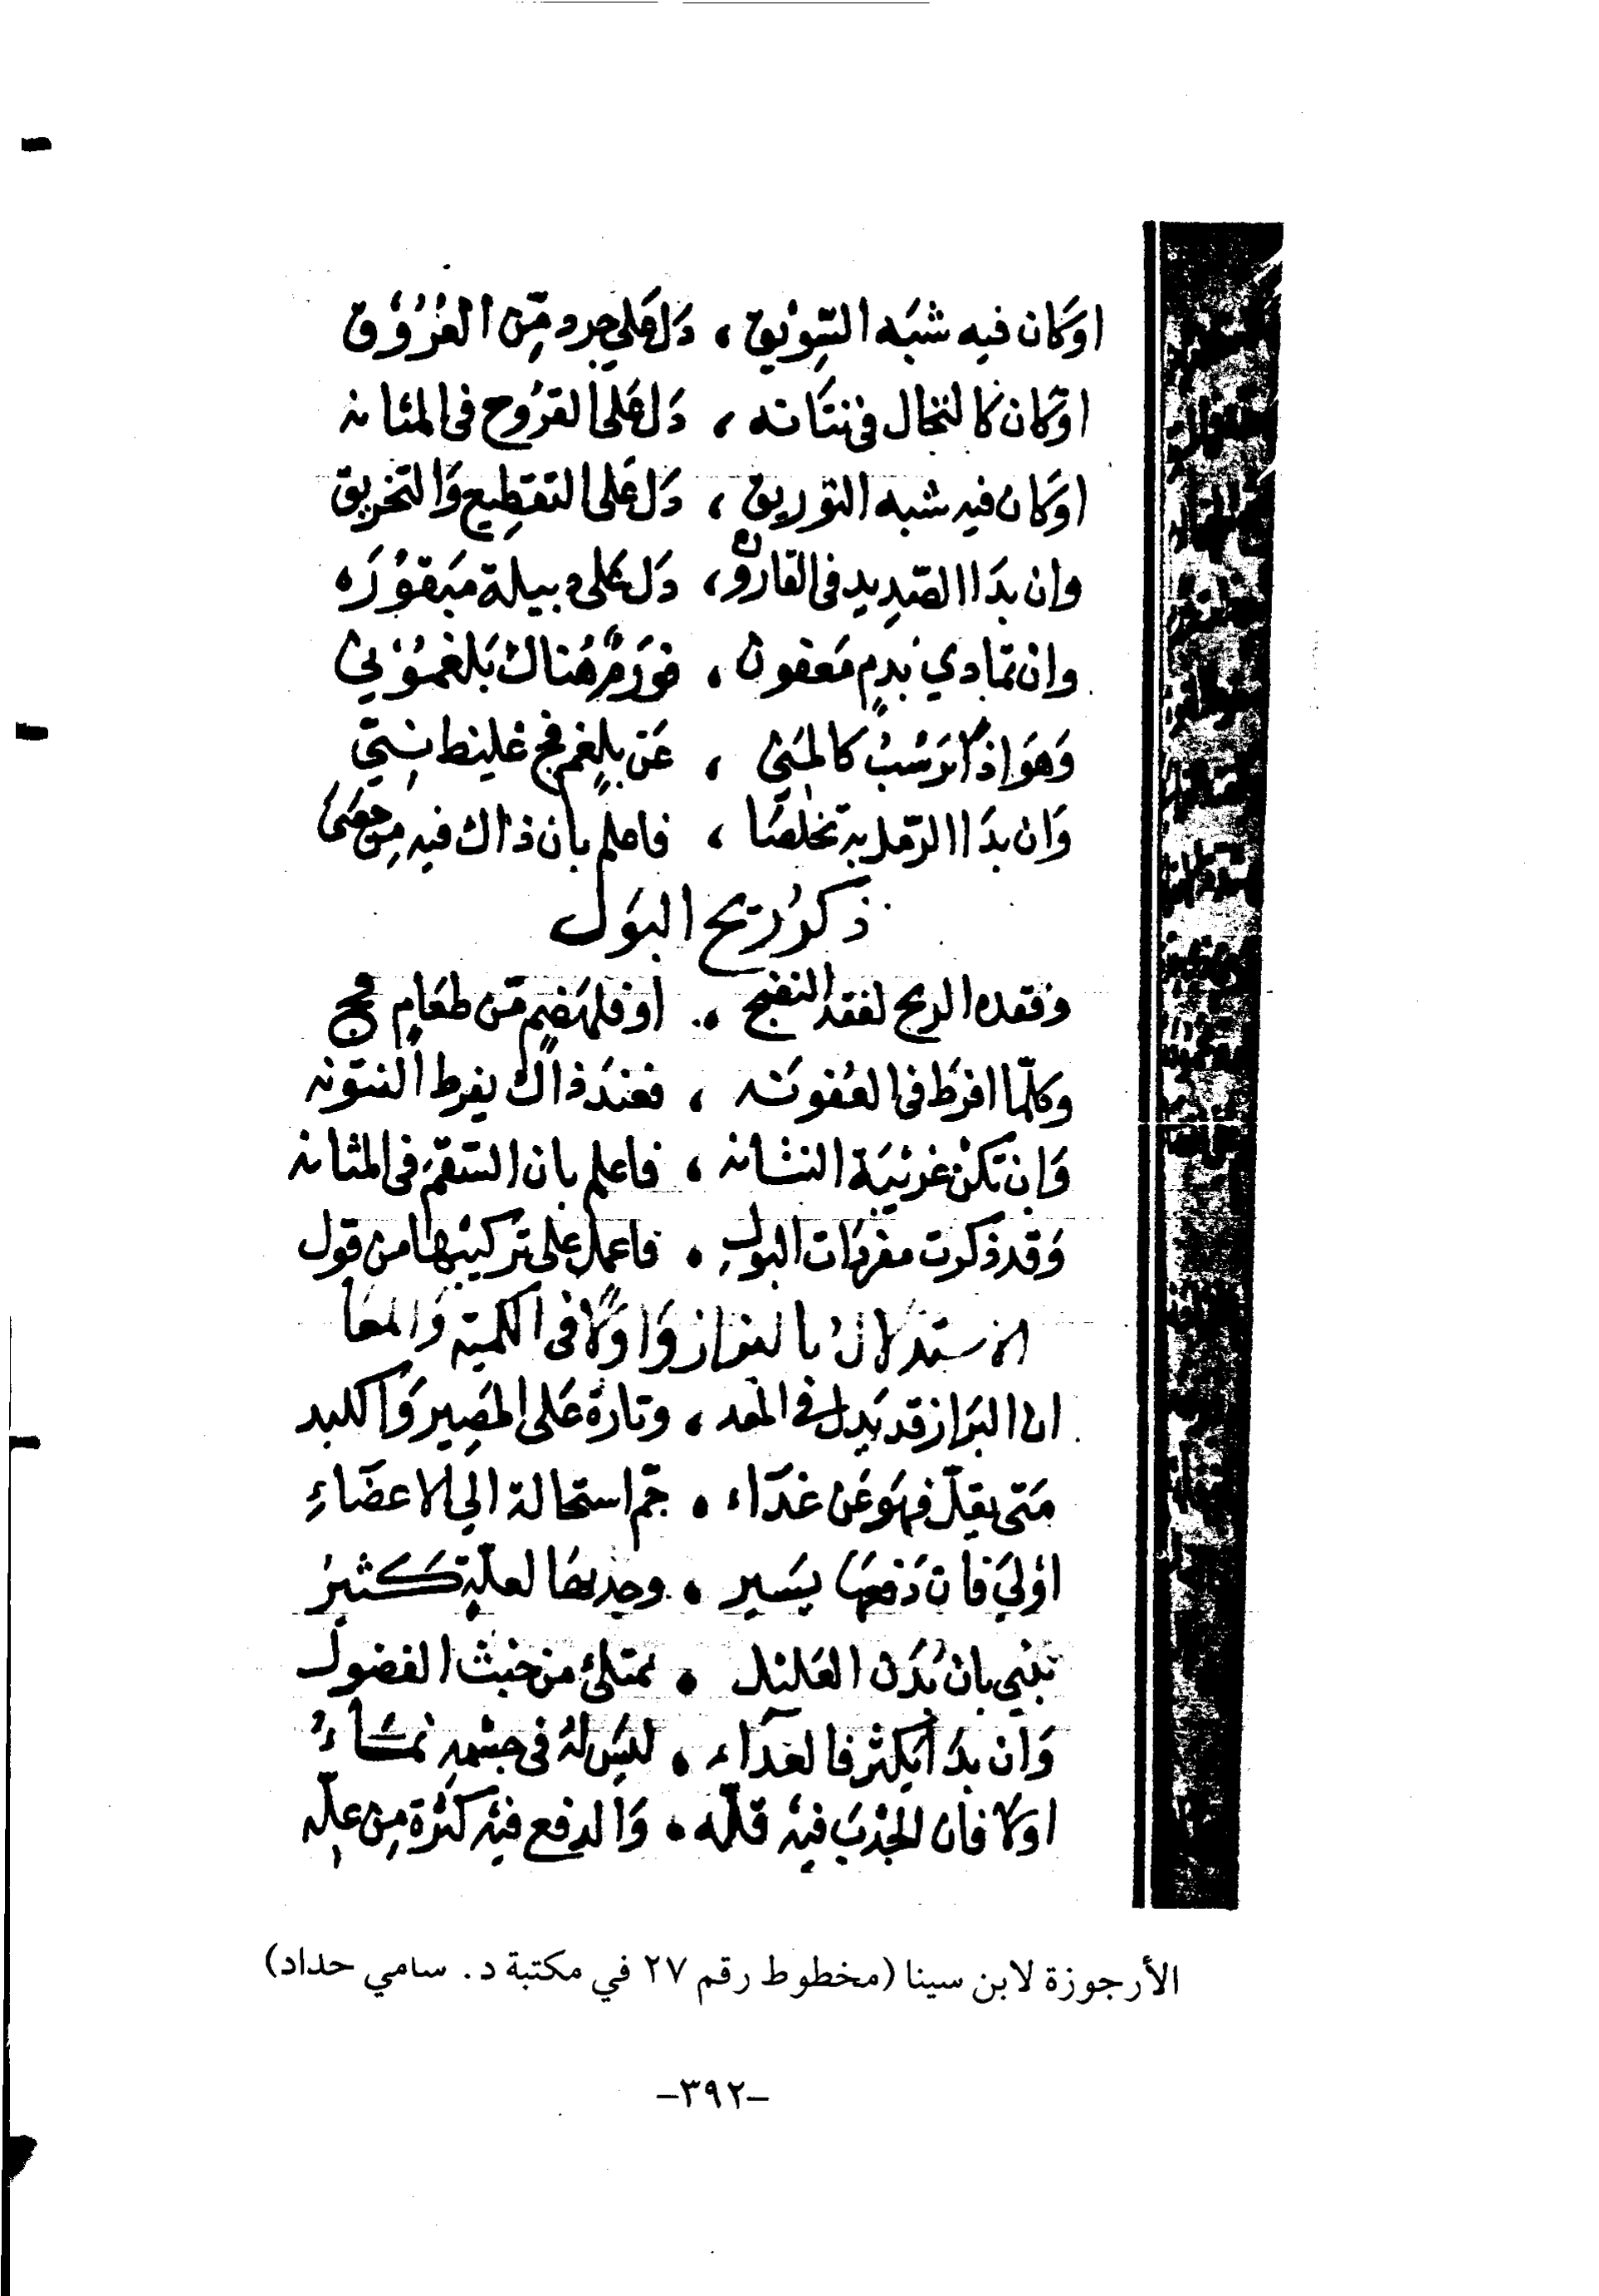 اوكان فيه شبَه السّويق ، دَل عَلى جرد مّن العُرُوق
اوكان كالنخال فى نتَانه ، دَل عَلى القرُوح فى المثانه
اوكان فيه شبه التوريق ، دَل عَلى التقطِيع وَالتخريق
وان بدَا الصّدِيد فى القاروره ، دَل عَلى دبيلة مَبقوُرَه
وان تمادي بدمٍ مَعفون ، فورَمٌ هُناك بَلغموُني
وَهوَ اذا تَرسُبُ كالمَني ، عَن بلغمٍ فج غليظ نتي
وَان بدَا الرّمل به تخلصَا ، فاعلم بان ذاك فيه مِن حصَى
ذكرُ ريح البَول
وفقده الريح لفقد النضج . اوفلهَضم مّن طعَامٍ فج
وكلّما افرَط فى العُفونَه ، فعندَ ذاك يفرط النتونه
وَان تكنْ غريبَة النتانه ، فاعلم بان السّقمَ فى المثانه
وَقد ذكرت مفرَدَات البولِ . فاعمل على تَركيبهَا من قول
الاستدلالُ بالبراز وَاوّلاً فى الكمية وَالمعَا
ان البرَاز قد يَدل فى المعد ، وتارةً عَلى المصِير وَالكبد
مَتى يقلّ فهوَ عَن غدَآء . جّم استحالة الي الاعضَآءِ
اوْليَ فان دَفعهَا يسَير . وجذبهَا لعلّةٍ كَثيرُ
تنبي بان بَدَن العَليل . ممتلئ من خبث الفضول
وَان بدَا يَكثر فالغدَآء . ليسَ لهُ فى جسْمِه نمَآءُ
اولا فان الجذبَ فيْه قلّه . وَالدفع فيْه كَثرة مِن علّه
الأرجوزة لابن سينا (مخطوط رقم ٢٧ في مكتبة د. سامي حداد)
-٣٩٢-